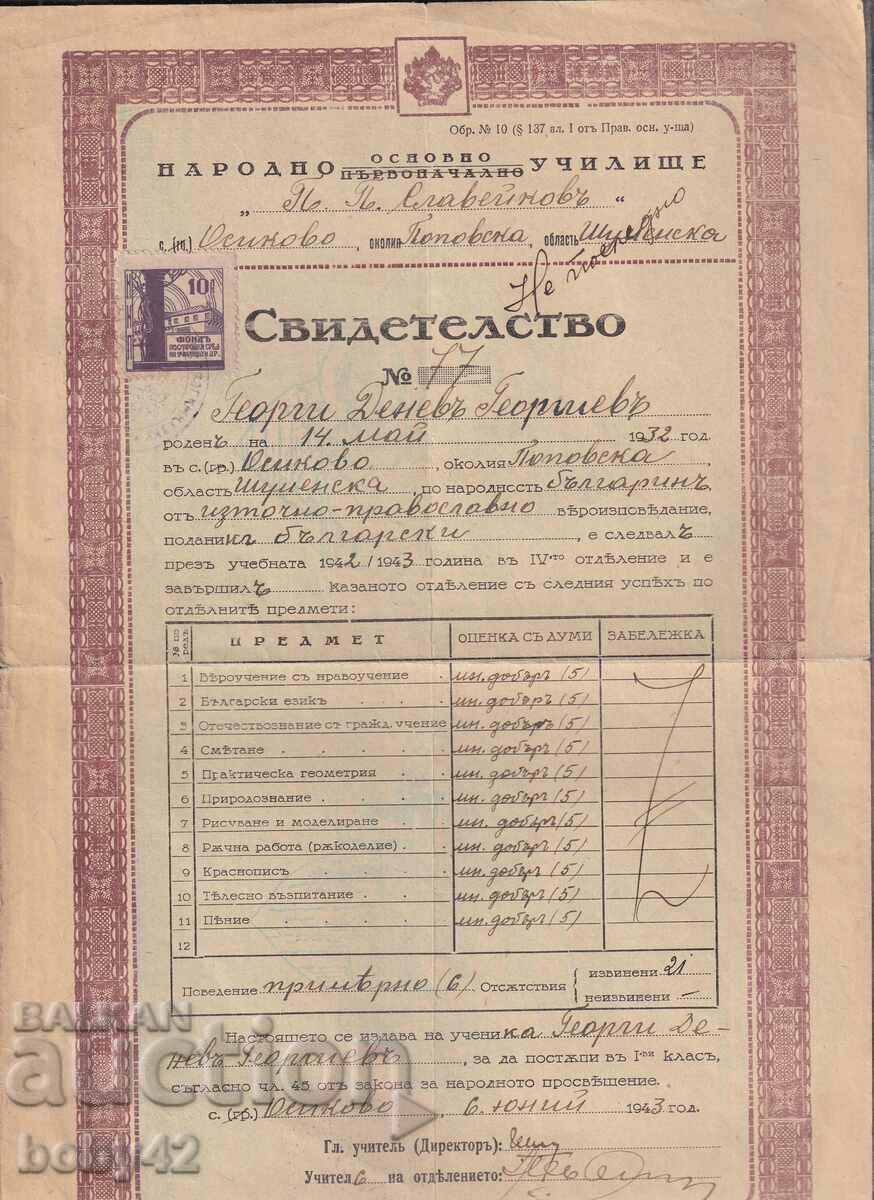 Обр. № 10 (§ 137 ал. I отъ Прав. осн. у-ща)
НАРОДНО ОСНОВНО ПЪРВОНАЧАЛНО УЧИЛИЩЕ
„ П. П. Славейковъ “
с. (гр.) Осиково, околия Поповска, область Шуменска
Не повредено
10
ФОНДЪ
ПОСТРОЙКИ СРЕД.
НИ УЧИЛИЩА И ДР.
СВИДЕТЕЛСТВО
№ 77
Георги Деневъ Георгиевъ
роденъ на 14. май 1932 год.
въ с. (гр.) Осиково, околия Поповска,
область Шуменска, по народность българинъ,
отъ източно-православно вѣроизповѣдание,
поданикъ български, е следвалъ
презъ учебната 1942/1943 година въ IV-то отдѣление и е
завършилъ казаното отдѣление съ следния успѣхъ по
отдѣлнитѣ предмети:
№ по редъ ПРЕДМЕТ ОЦЕНКА СЪ ДУМИ ЗАБЕЛЕЖКА
1 Вѣроучение съ нравоучение мн. добъръ (5)
2 Български езикъ мн. добъръ (5)
3 Отечествознание съ гражд. учение мн. добъръ (5)
4 Смѣтане мн. добъръ (5)
5 Практическа геометрия мн. добъръ (5)
6 Природознание мн. добъръ (5)
7 Рисуване и моделиране мн. добъръ (5)
8 Рѫчна работа (рѫкоделие) мн. добъръ (5)
9 Краснописъ мн. добъръ (5)
10 Тѣлесно възпитание мн. добъръ (5)
11 Пѣние мн. добъръ (5)
12
Поведение примѣрно (6) Отсѫтствия извинени 21
неизвинени –
Настоящето се издава на ученика Георги Де-
невъ Георгиевъ, за да постѫпи въ I-ви класъ,
съгласно чл. 45 отъ закона за народното просвѣщение.
с. (гр.) Осиково, 6. юний 1943 год.
Гл. учитель (Директоръ):
Учител на отдѣлението:
BALKAN
auction
boby42